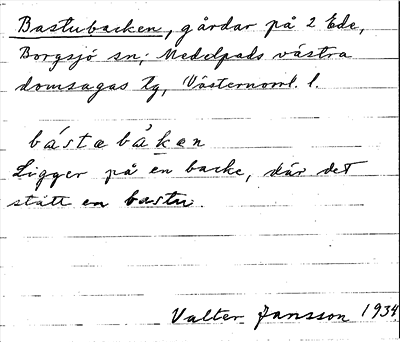 Bastubacken, gårdar på 2 Ede,
Borgsjö sn; Medelpads västra
domsagas tg, Västernorrl. l.
bástabàkan
Ligger på en backe, där det
stått en bastu.
Valter Jansson 1934